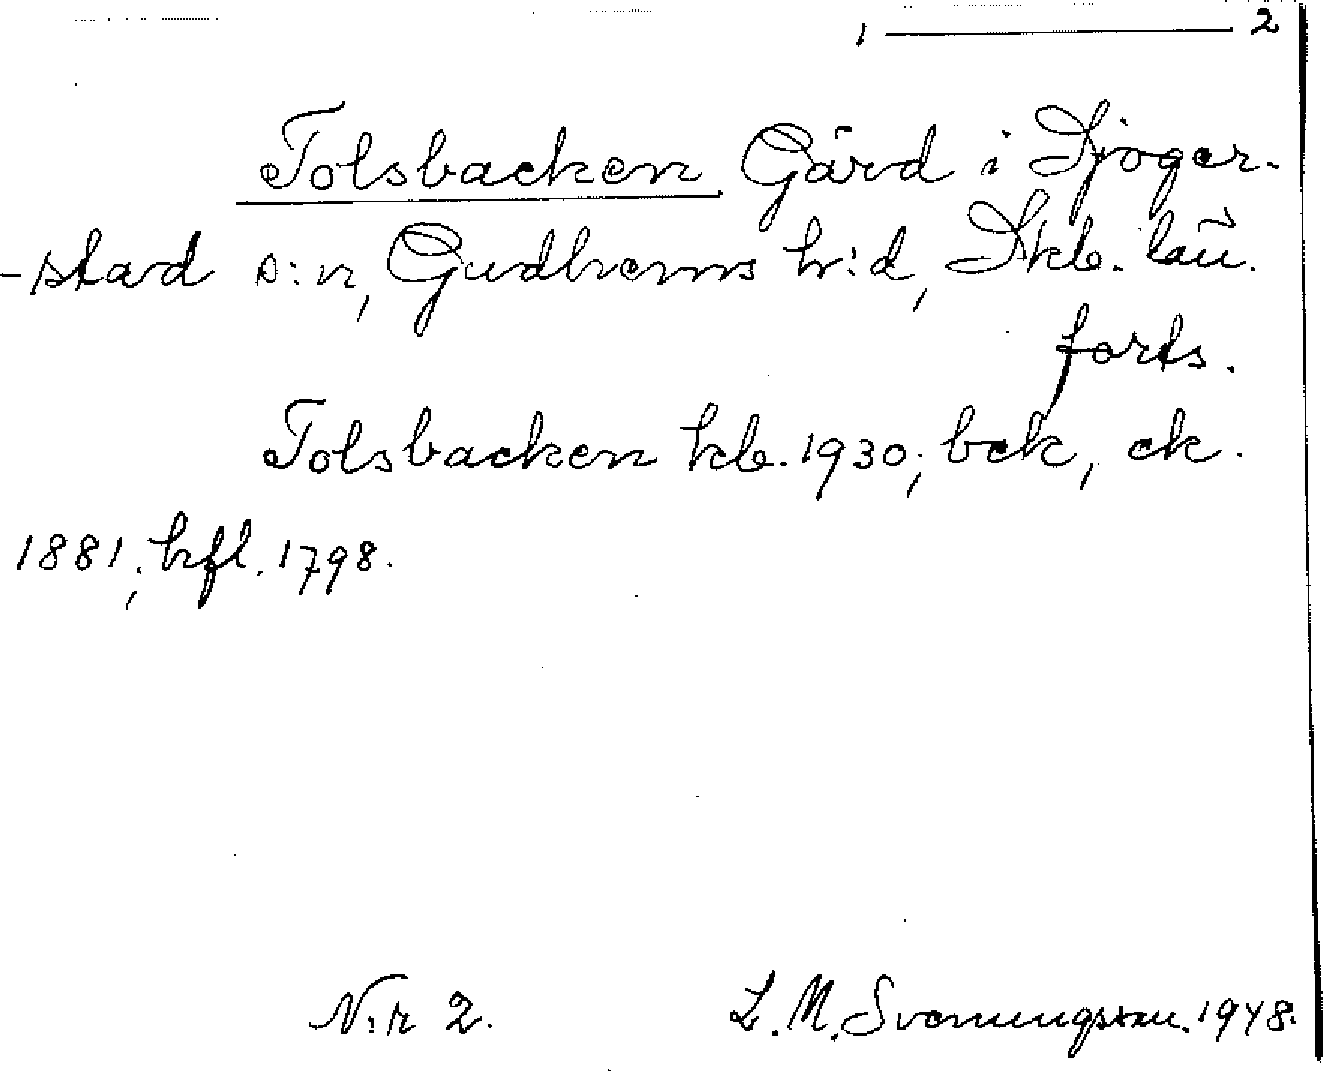 1 ———— 2
Tolsbacken Gård i Sjoger-
-stad s:n, Gudhems h:d, Skb. län.
forts.
Tolsbacken kb. 1930; bek, ek.
1881; hfl. 1798.
N:r 2. L. M. Svenungsson. 1948.